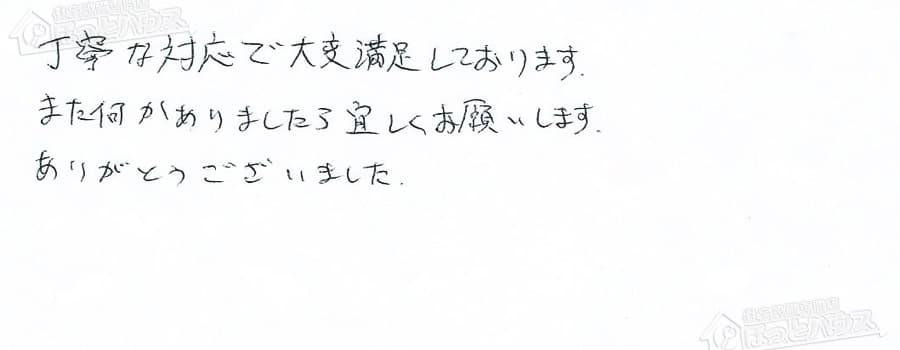 丁寧な対応で大変満足しております.
また何かありましたら宜しくお願いします.
ありがとうございました.
ほっとハウス
ほっとハウス